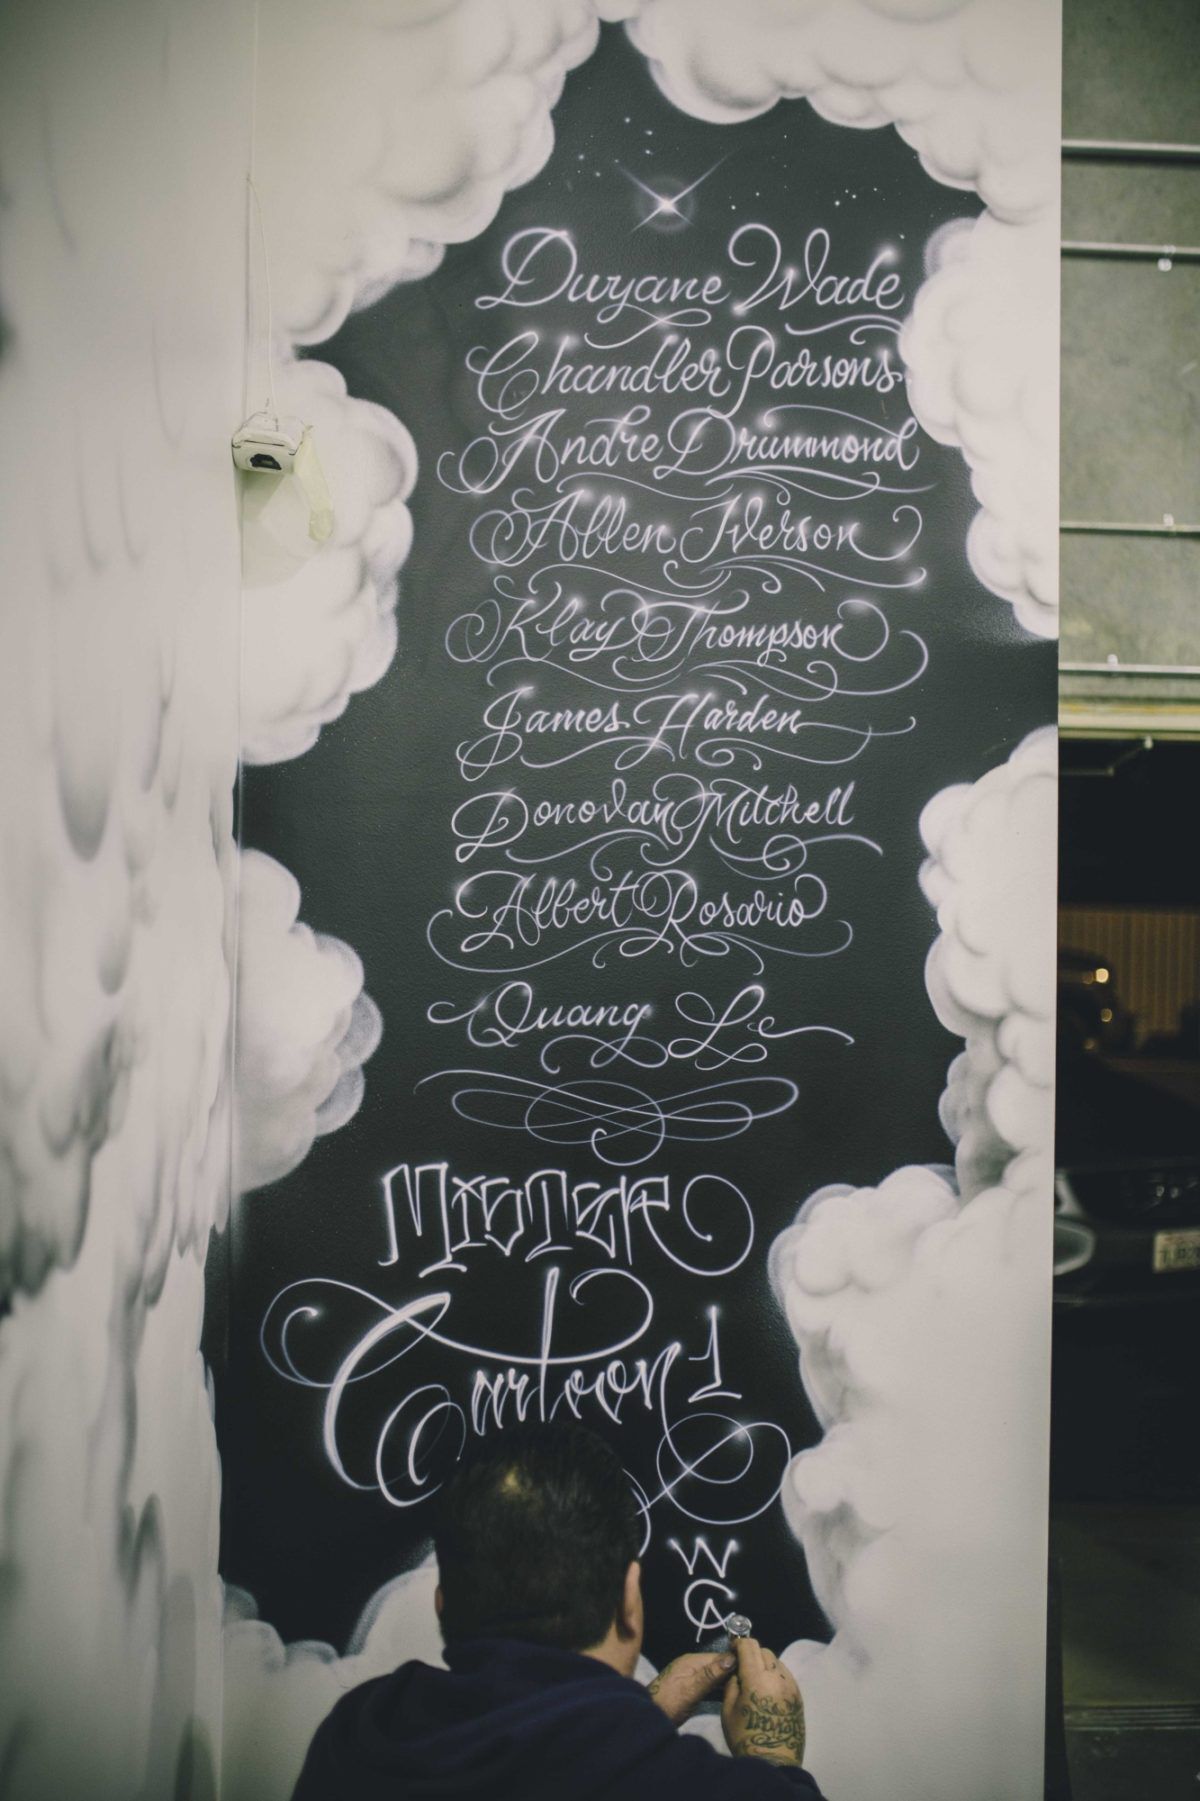 Dwyane Wade
Chandler Parsons
Andre Drummond
Allen Iverson
Klay Thompson
James Harden
Donovan Mitchell
Albert Rosario
Quang Le
Mister
Cartoon 1
W
CA